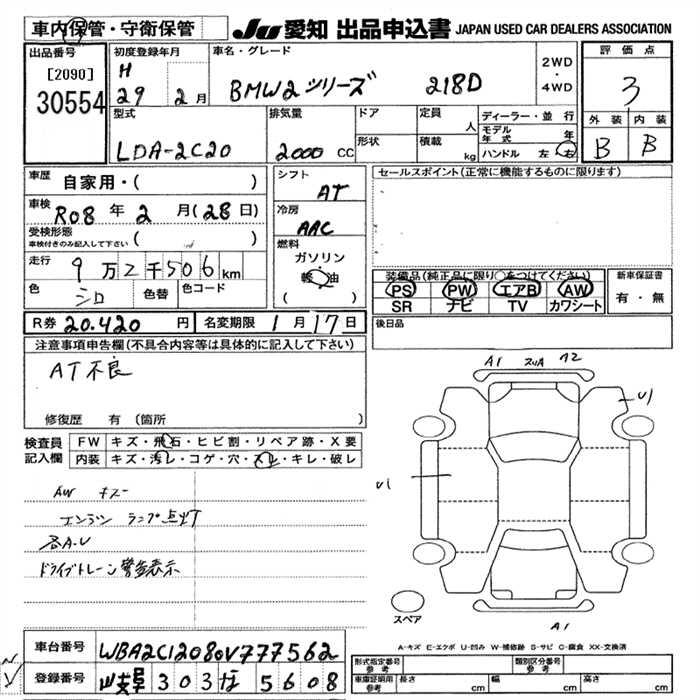 車内保管・守衛保管
JU 愛知 出品申込書 JAPAN USED CAR DEALERS ASSOCIATION
出品番号 初度登録年月 車名・グレード 2WD・4WD 評価点
[2090] H 29 2月 BMW2シリーズ 218D 3
30554 型式 排気量 ドア 定員 人 ディーラー・並行 外装 内装
LDA-2C20 2000 CC 形状 積載 kg モデル年式 年 ハンドル 左 右 B B
車歴 自家用・( ) シフト AT セールスポイント(正常に機能するものに限ります)
車検 R08年2月(28日) 冷房 AAC
受検形態 車検付きのみ記入して下さい ( ) 燃料
走行 9万2千506km ガソリン
色 シロ 色替 色コード 軽油 ( )
装備品(純正品に限り○をつけてください) 新車保証書
PS PW エアB AW 有・無
SR ナビ TV カワシート
R券 20.420円 名変期限 1月17日 後日品
注意事項申告欄(不具合内容等は具体的に記入して下さい)
AT不良
修復歴 有 (箇所 )
A1 スリA A2
U1
U1
検査員記入欄 FW キズ・飛石・ヒビ割・リペア跡・X要
内装 キズ・汚レ・コゲ・穴・スレ・キレ・破レ
AW キズー
エンジン ランプ点灯
各A.U
ドライブトレーン警告表示
スペア
A1
A-キズ E-エクボ U-凹み W-補修跡 S-サビ C-腐食 XX-交換済
車台番号 WBA2C12080V777562
登録番号 303 な 5608
型式指定番号 参考 類別区分番号 参考
車庫証明用 参考 長さ cm 幅 cm 高さ cm